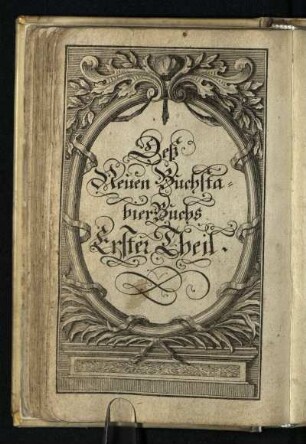 Deß
Neuen Buchsta-
bierBuchs
Erster Theil.